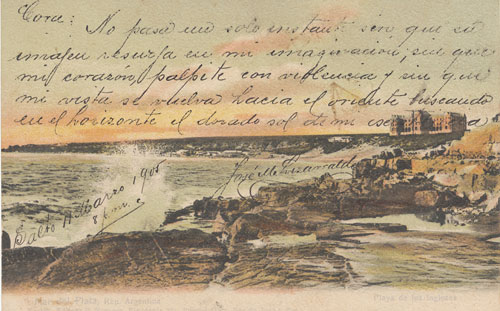 Cora: No pasa un solo instante sin que su
imajen resurja en mi imaginacion, sin que
mi corazon palpite con violencia y sin que
mi vista se vuelva hacia el oriente buscando
en el horizonte el dorado sol de mi
José M.
Salto 14 Marzo 1905
8 p.m.
Mar del Plata, Rep. Argentina
Playa de los Ingleses